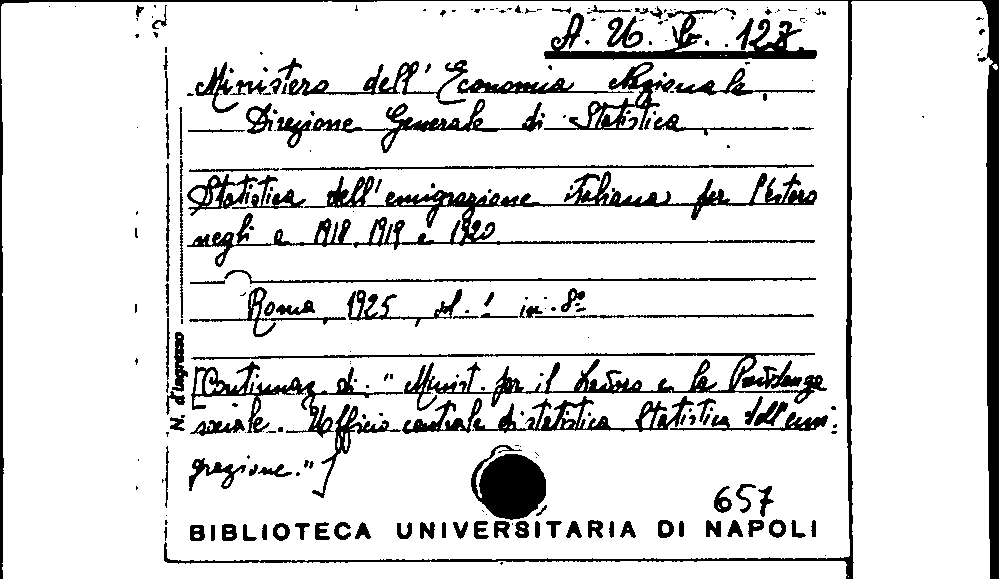 A. U. C. 127.
Ministero dell' Economia Nazionale.
Direzione Generale di Statistica.
Statistica dell'emigrazione italiana per l'estero
negli a. 1918, 1919 e 1920
Roma, 1925, in-8º
[Continuaz. di: "Minist. per il Lavoro e la Previdenza
sociale. Ufficio centrale di statistica. Statistica dell'emi-
grazione."]
N. d'Ingresso
657
BIBLIOTECA UNIVERSITARIA DI NAPOLI